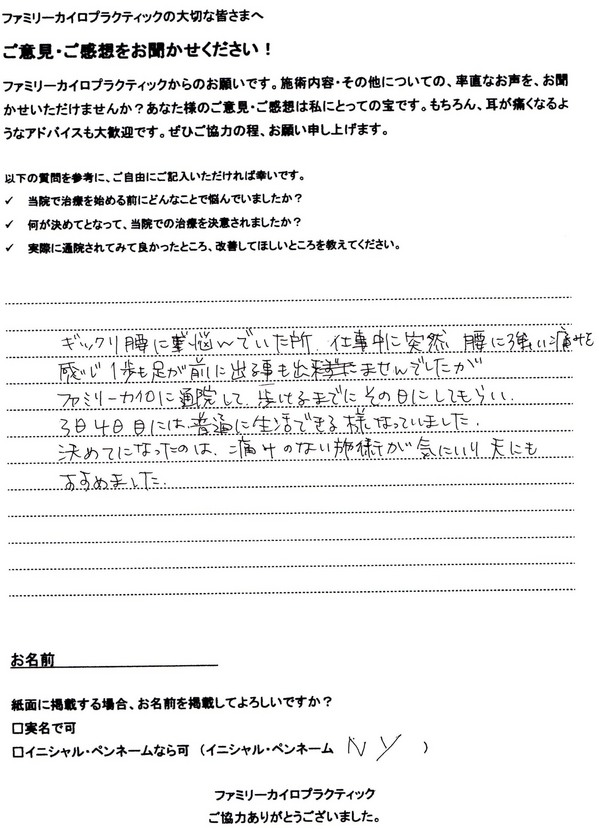 ファミリーカイロプラクティックの大切な皆さまへ
ご意見・ご感想をお聞かせください！
ファミリーカイロプラクティックからのお願いです。施術内容・その他についての、率直なお声を、お聞
かせいただけませんか？あなた様のご意見・ご感想は私にとっての宝です。もちろん、耳が痛くなるよ
うなアドバイスも大歓迎です。ぜひご協力の程、お願い申し上げます。
以下の質問を参考に、ご自由にご記入いただければ幸いです。
✓ 当院で治療を始める前にどんなことで悩んでいましたか？
✓ 何が決めてとなって、当院での治療を決意されましたか？
✓ 実際に通院されてみて良かったところ、改善してほしいところを教えてください。
ギックリ腰に悩んでいた所、仕事中に突然 腰に強い痛みを
感じ 1歩も足が前に出る事も出来ませんでしたが
ファミリーカイロに通院して、歩けるまでにその日にしてもらい、
3日4日目には普通に生活できる様なっていました。
決めてになったのは、痛みのない施術が気にいり 夫にも
すすめました。
お名前
紙面に掲載する場合、お名前を掲載してよろしいですか？
□実名で可
□イニシャル・ペンネームなら可 （イニシャル・ペンネーム N Y ）
ファミリーカイロプラクティック
ご協力ありがとうございました。